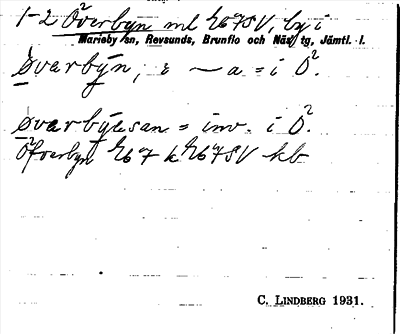 1-2 Överbyn ml h67SV, by i
Marieby sn, Revsunds, Brunflo och Näs tg, Jämtl. l.
øvarbýn, ɛ ~ a = i Ö².
øvarbýesan = inv. i Ö².
Öfverbyn h67 k h67SV kb
C. LINDBERG 1931.